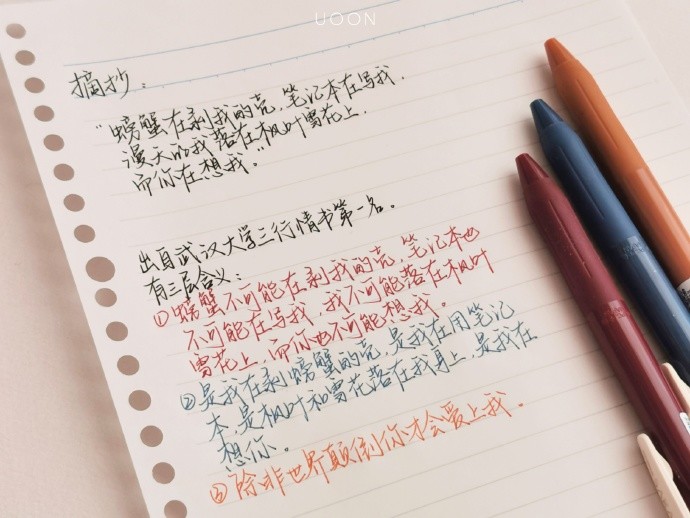 UOON
摘抄：
“螃蟹在剥我的壳，笔记本在写我.
漫天的我落在枫叶雪花上.
而你在想我。”
出自武汉大学三行情书第一名。
有三层含义：
①螃蟹不可能在剥我的壳，笔记本也
不可能在写我，我不可能落在枫叶
雪花上，而你也不可能想我。
②是我在剥螃蟹的壳，是我在用笔记
本，是枫叶和雪花落在我身上，是我在
想你。
③除非世界颠倒你才会爱上我。